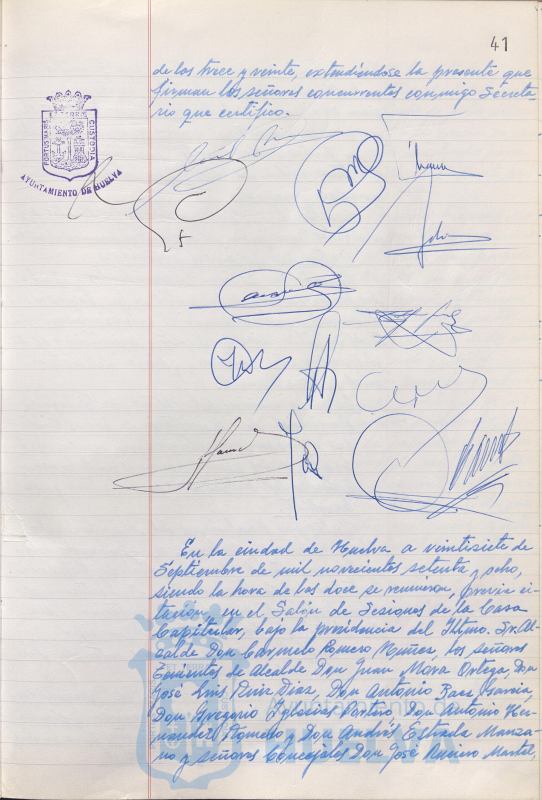 41
de los trece y veinte, extendiéndose la presente que
firman los señores concurrentes conmigo Secreta-
rio que certifico.
PORTUS MARIS ET TERRE CUSTODIA
AYUNTAMIENTO DE HUELVA
En la ciudad de Huelva a veintisiete de
Septiembre de mil novecientos setenta y ocho,
siendo la hora de las doce, se reunieron, previa ci-
tación, en el Salón de Sesiones de la Casa
Capitular, bajo la presidencia del Iltmo. Sr. Al-
calde Don Carmelo Romero Núñez, los señores
Tenientes de Alcalde Don Juan Mora Ortega, Don
José Luis Ruiz Díaz, Don Antonio Baez García,
Don Gregorio Iglesias Don Antonio Her-
nández Romero y Don Andrés Estrada Manza-
no y señores Concejales Don José Rivero Martel,
Ayuntamiento de
HUELVA